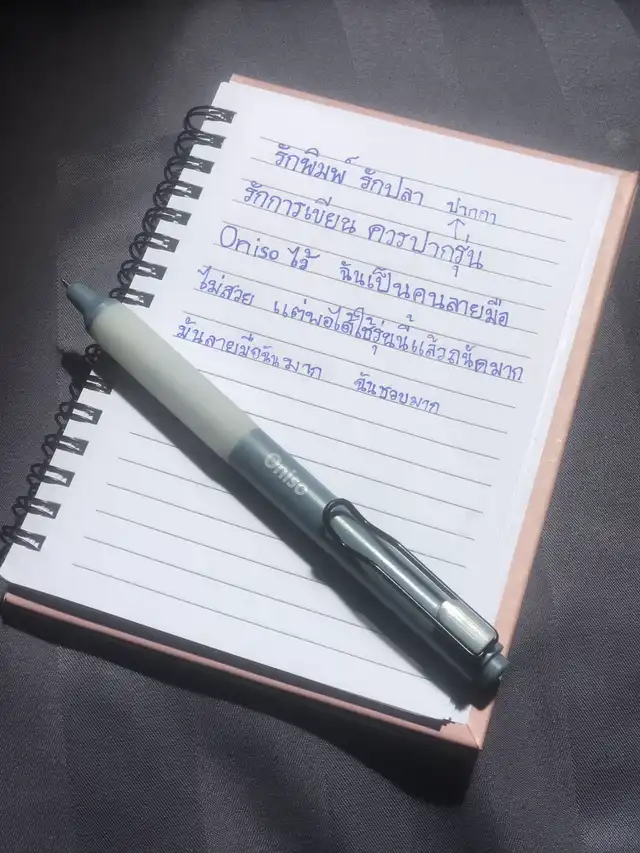 รักพิมพ์ รักปลา ปากกา
รักการเขียน ควรปากรุ่น
Oniso ไว้ ฉันเป็นคนลายมือ
ไม่สวย แต่พอได้ใช้รุ่นนี้แล้วถนัดมาก
มั่นลายมือฉันมาก ฉันชอบมาก
Oniso